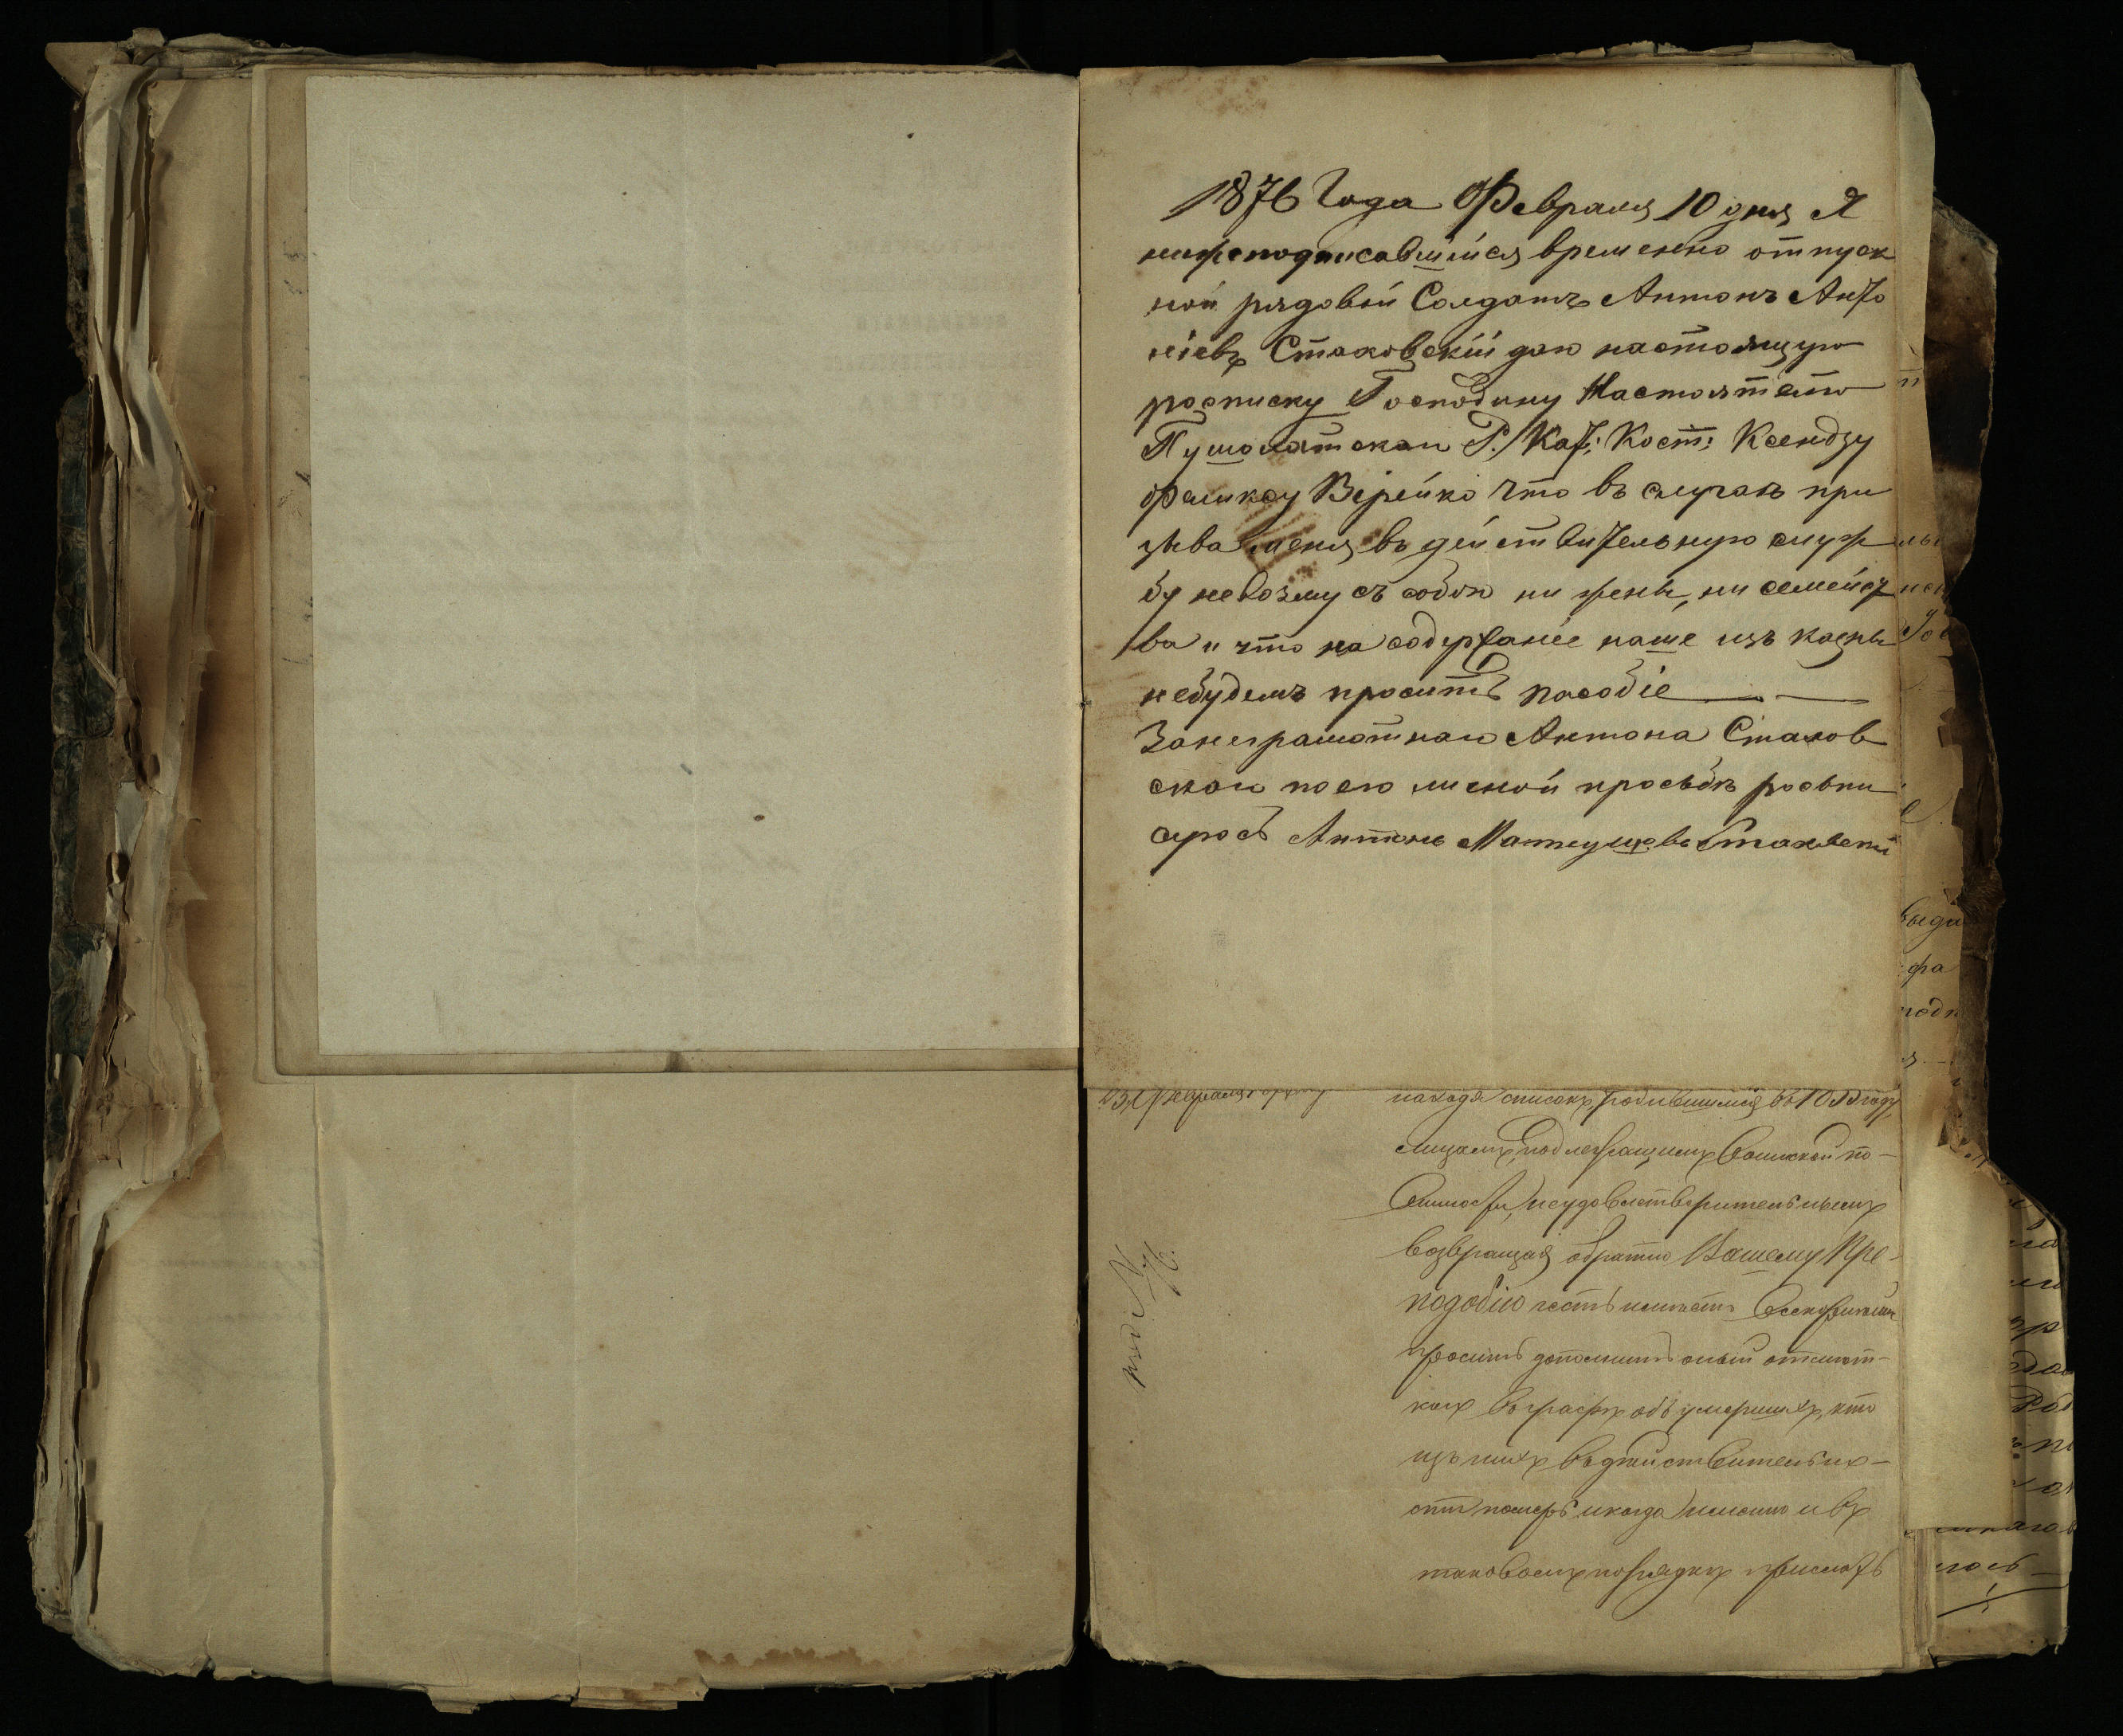 1876 Года Февраля 10 дня Я
нижеподписавшийся временно отпуск
ной рядовый Солдатъ Антонъ Анто
ніевъ Стаховскій даю настоящую
росписку Господину Настоятелю
Пушолатскаго Р. Каѳ: Кост: Ксендзу
Феликсу Верейко что въ случаѣ при
зыва меня въ действительную служ
бу не возму съ собою ни жены, ни семейст
ва и что на содержаніе наше изъ казны
небудемъ просить пособіе
За неграмотнаго Антона Стахов
скаго по его личной просьбѣ росьпи
сулсь Антонъ Матеушевъ Стаховскій
находя списокъ родившимся въ году,
лицамъ, подлежащимъ Воинской по-
винности, неудовлетворительнымъ
возвращая обратно Вашему Пре-
подобію честь имѣетъ всепокорнѣйше
просить дополнить оный отмѣт-
кою въ графѣ объ умершихъ, кто
изъ нихъ въ дѣйствительно-
сти померъ и когда именно и въ
таковомъ порядкѣ прислать